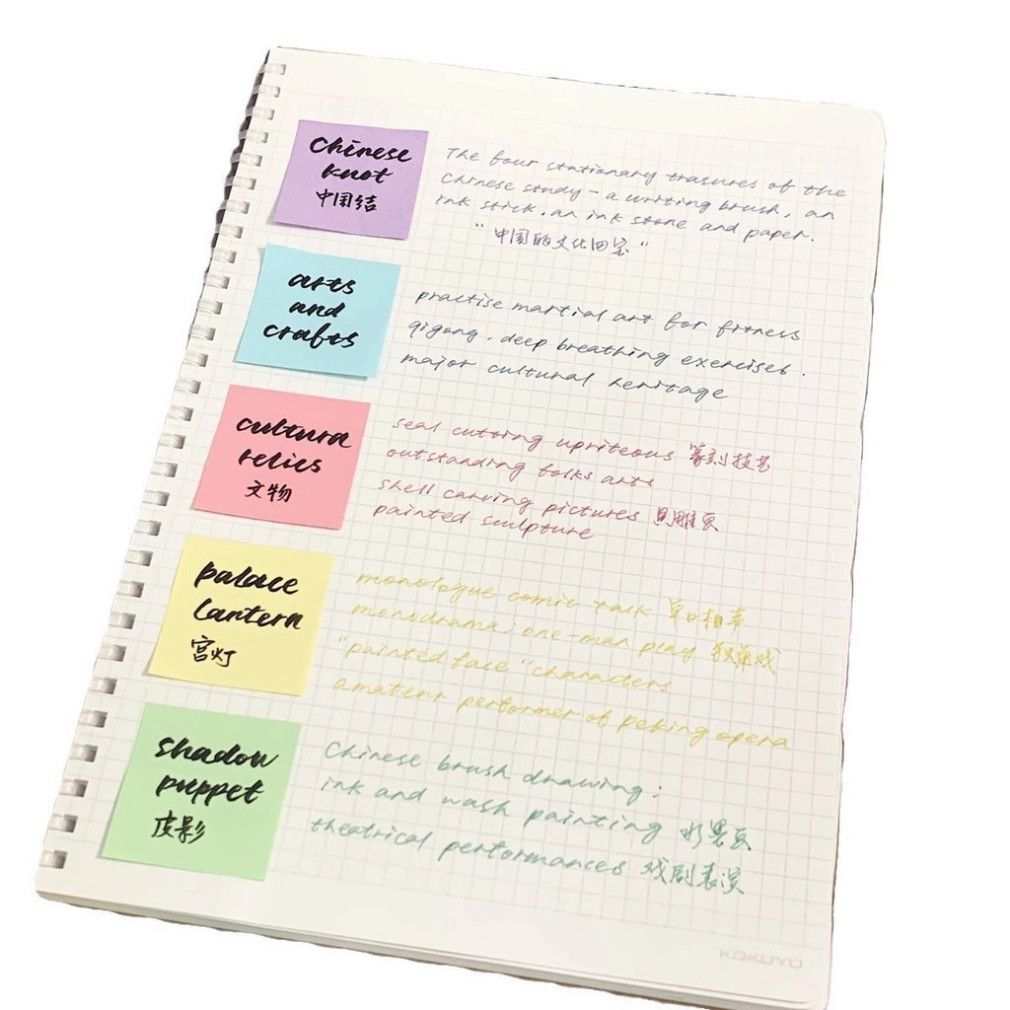 Chinese
knot
中国结
The four stationary trasures of the
Chinese study - a writing brush, an
ink stick, an ink stone and paper.
"中国的文化四宝"
arts
and
crafts
practise martial art for fitness
qigong, deep breathing exercises.
major cultural heritage
cultura
relics
文物
seal cutting upriteous 篆刻技艺
outstanding folks arts
shell carving pictures 贝雕画
painted sculpture
palace
lantern
宫灯
monologue comic talk 单口相声
monodrama: one-man play 独角戏
"painted face" characters
amateur performer of peking opera
shadow
puppet
皮影
Chinese brush drawing:
ink and wash painting 水墨画
theatrical performances 戏剧表演
KOKUYO